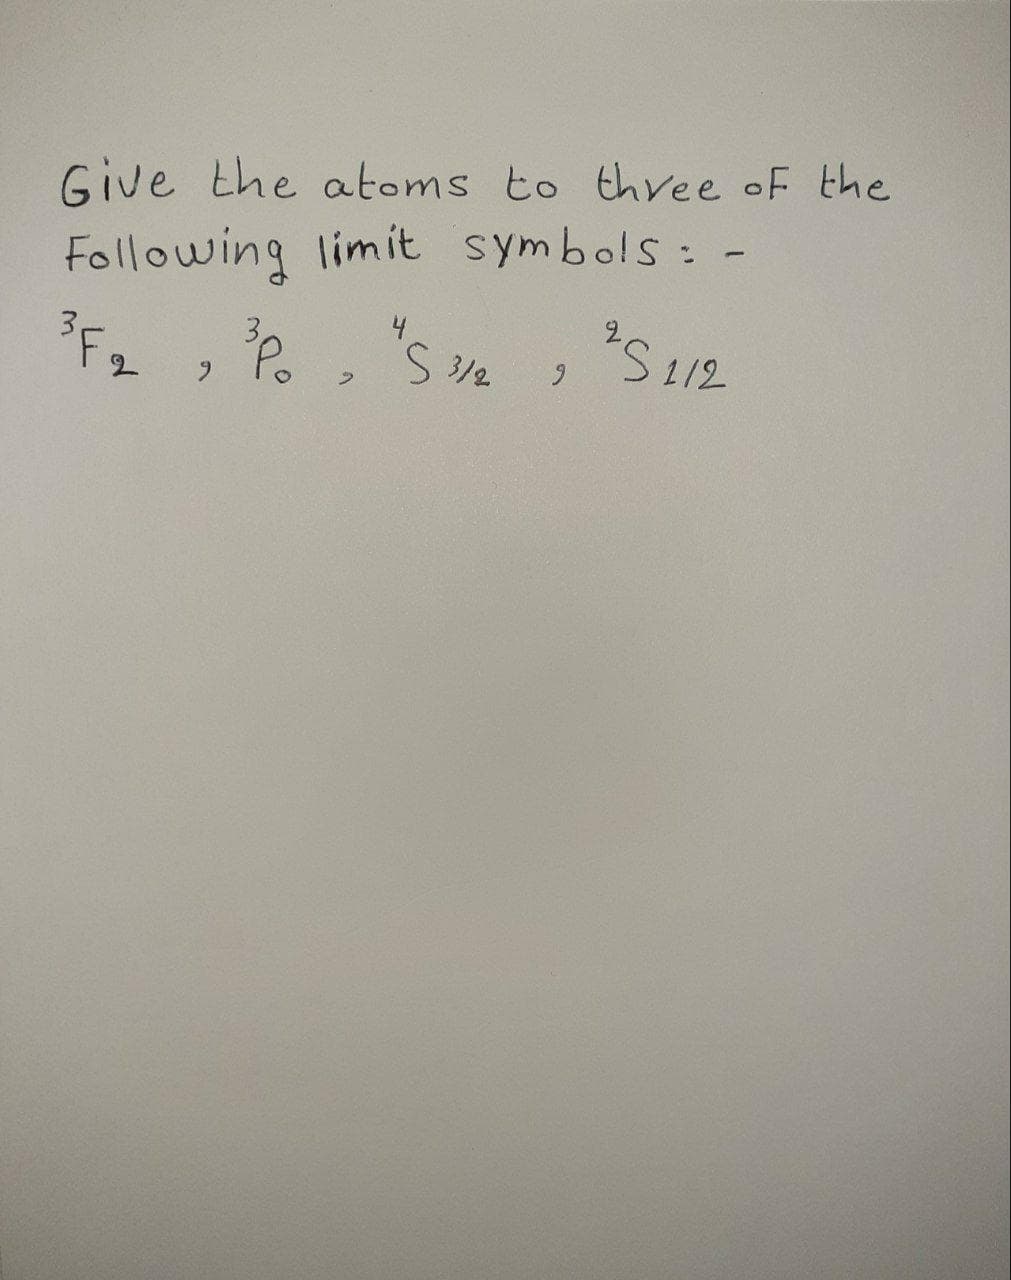 Give the atoms to three of the
Following limit symbols : -
³F₂ , ³P₀ , ⁴S 3/2 , ²S 1/2